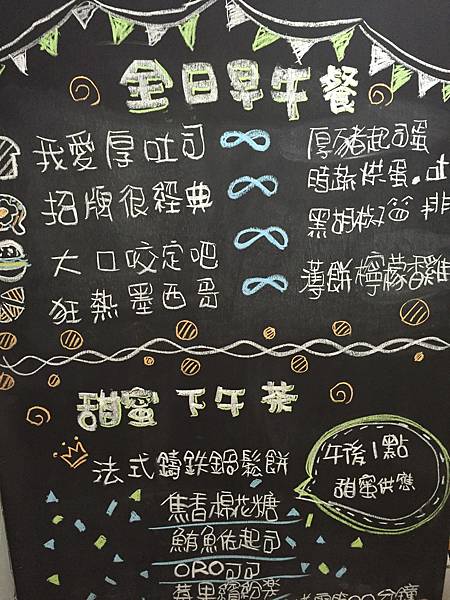 全日早午餐
我愛厚吐司 厚豬起司蛋
招牌很經典 時蔬烘蛋.at
大口咬定吧 黑胡椒 排
狂熱墨西哥 薄餅檸檬香雞
甜蜜下午茶
法式鑄鐵鍋鬆餅
午後1點
甜蜜供應
焦香棉花糖
鮪魚佐起司
ORO可可
莓果繽紛樂
分鐘